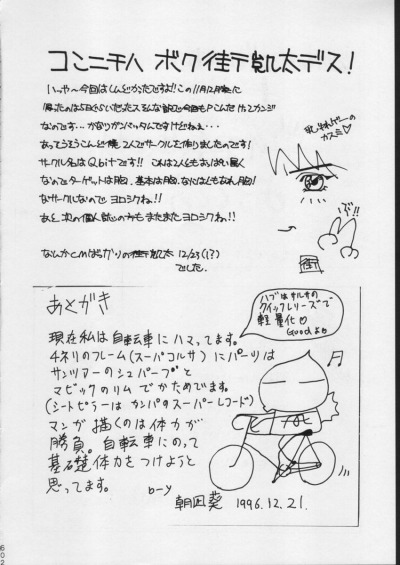 コンニチハ ボク街下凱太デス!
いや〜今回はしんどかったですよ!! この11月12月売に
なのです… かなりガンバッタんですけどねぇ…
あっそうそうこんど僕、2人でサークルを作りましたのです!
サークル名はQbitです!!
なのでターゲットは胸、基本は胸、なにはともあれ胸!
なサークルなので ヨロシクね!!
あと 次の個人誌のみも またまたヨロシクね!!
なんかCMばっかりの
12/23(!?)
でした。
カスミ♡
街
あとがき
現在私は自転車にハマってます。
4ネリのフレーム(スーパコルサ)にパーツは
サンツアーのシュパーブと
マビックのリムでかためてます。
(シートピラーはカンパのスーパーレコード)
マンガ描くのは体力が
勝負。自転車にのって
基礎体力をつけようと
思ってます。
b-y 朝凪葵 1996.12.21.
ハブはサルサの
クイックレリーズで
軽量化♡
Goodよ♡
602